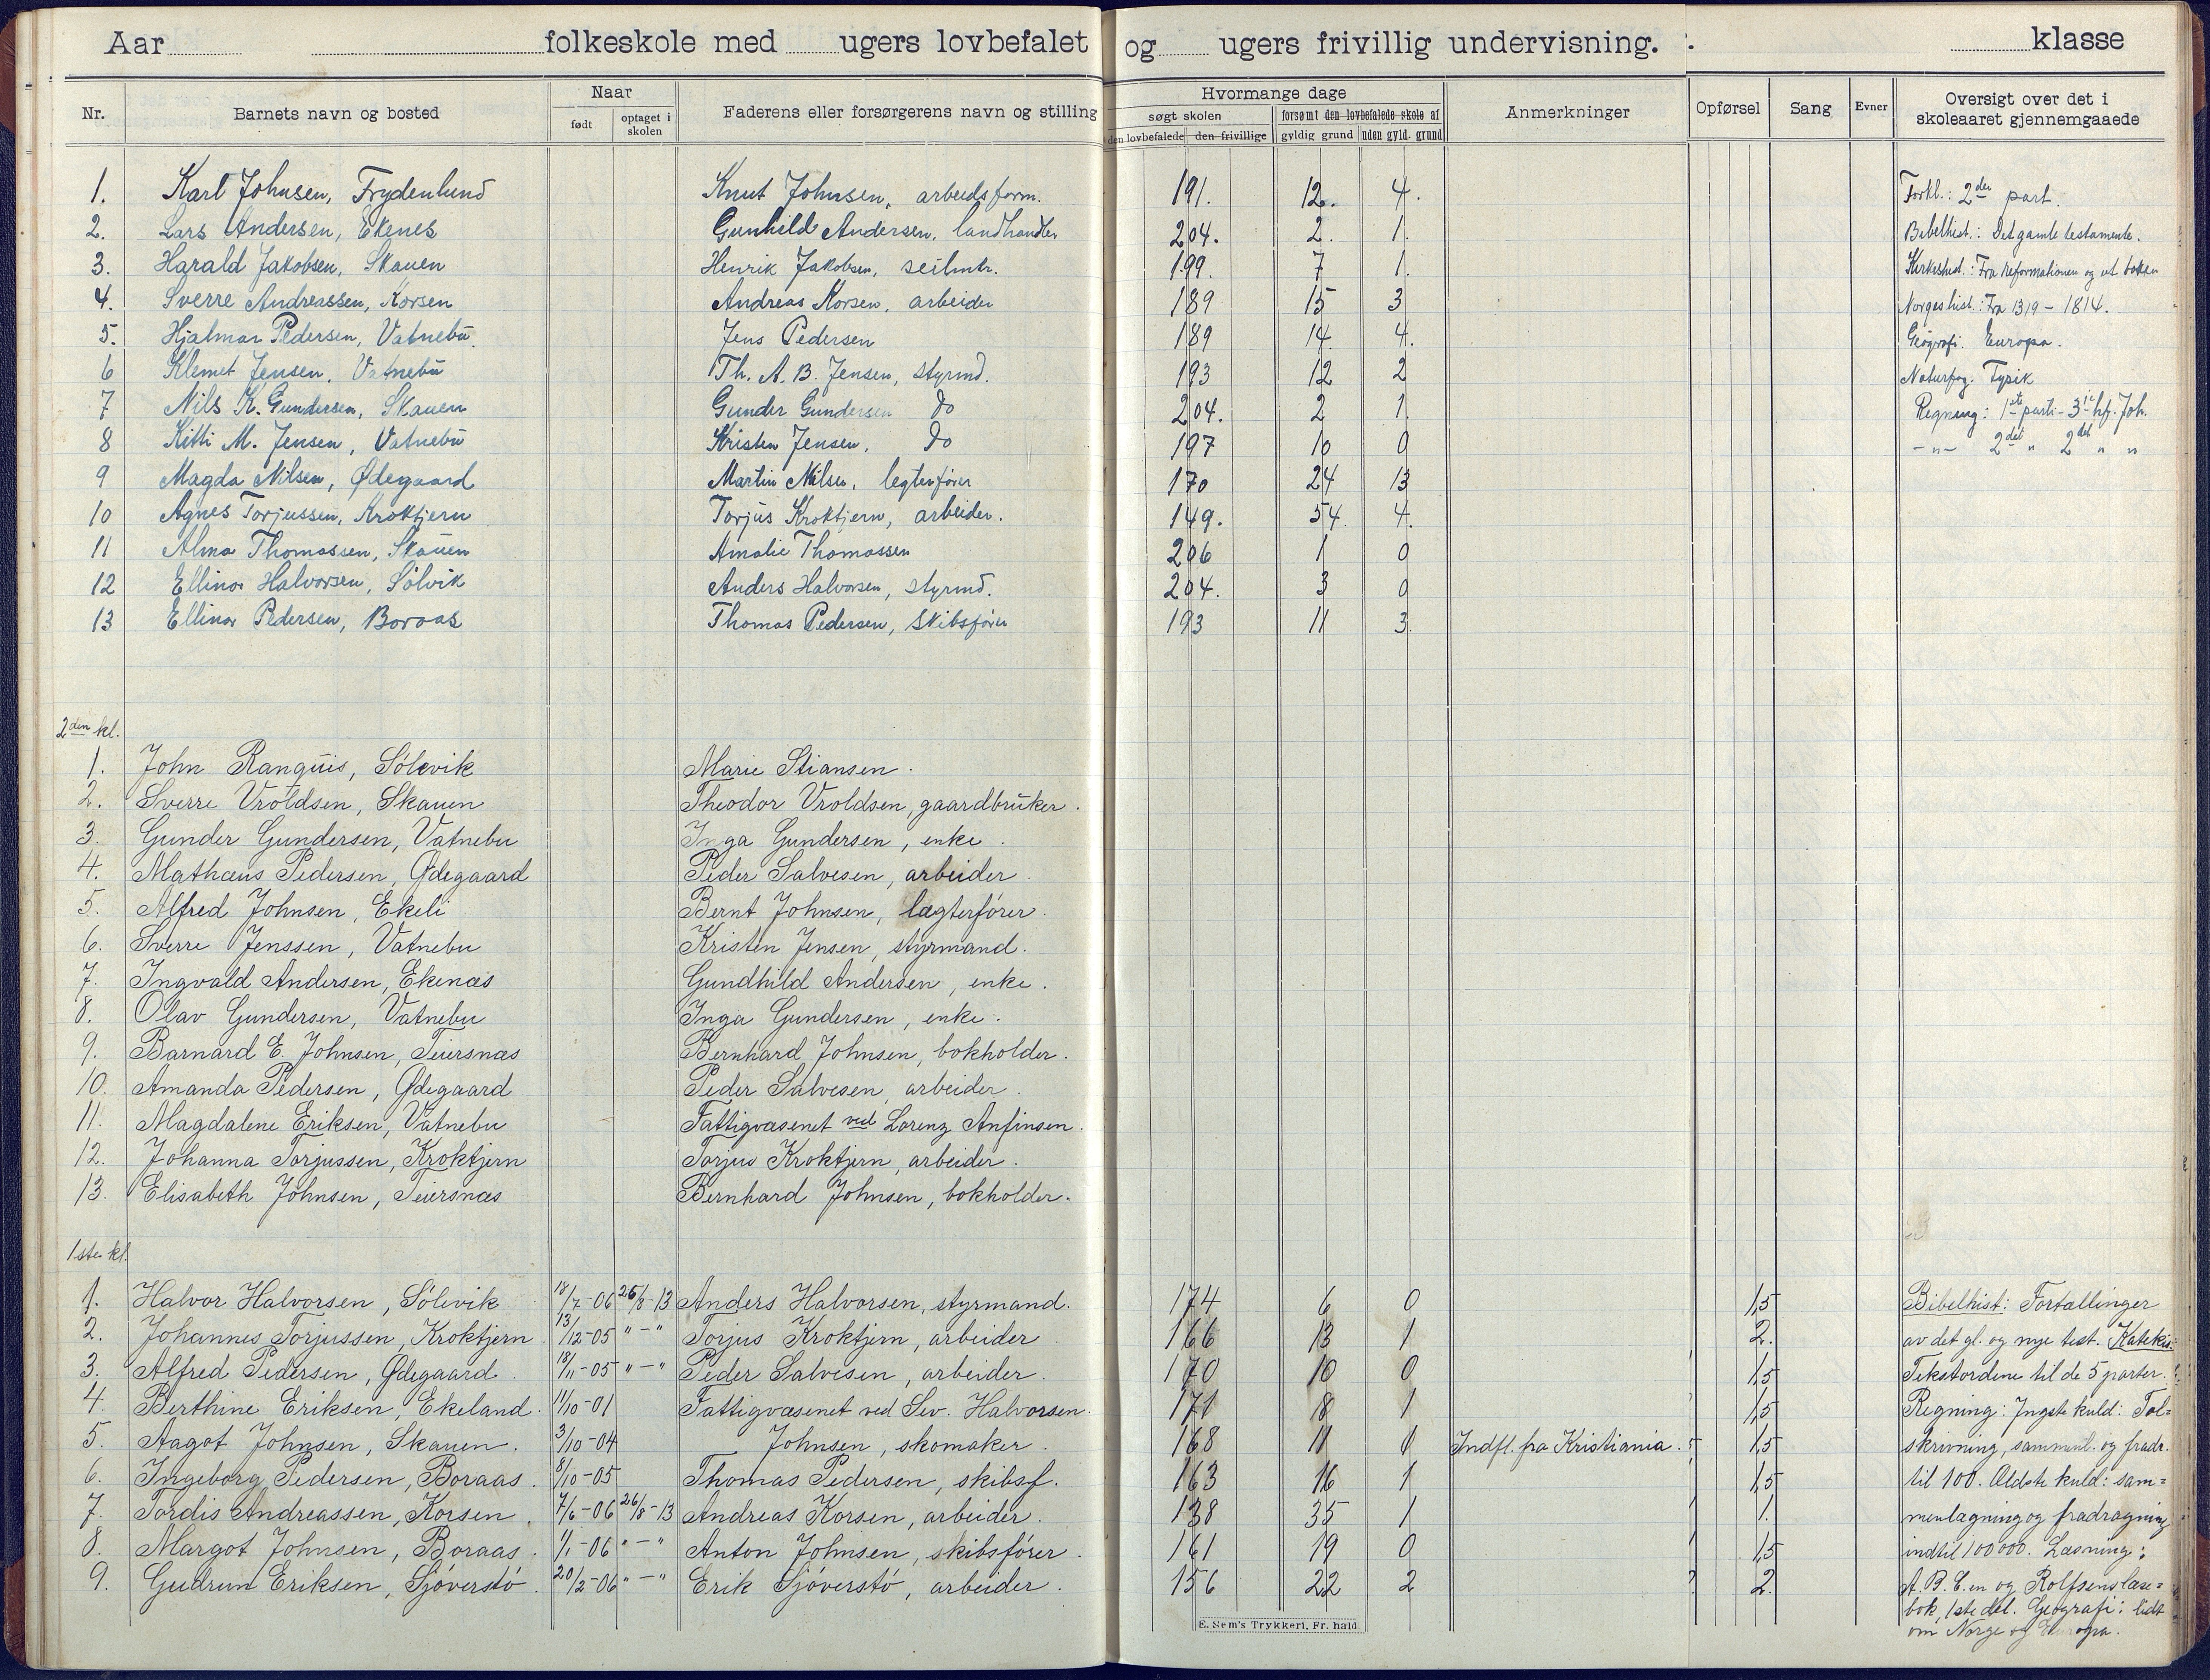 Aar folkeskole med ugers lovbefalet og ugers frivillig undervisning. klasse
Nr. Barnets navn og bosted Naar født optaget i skolen Faderens eller forsørgerens navn og stilling Hvormange dage søgt skolen den lovbefalede den frivillige forsømt den lovbefalede skole af gyldig grund uden gyld. grund Anmerkninger Opførsel Sang Evner Oversigt over det i skoleaaret gjennemgaaede
1. Karl Johnsen, Frydenlund Knut Johnsen, arbeidsform. 191. 12. 4. Forkl.: 2den part.
2. Lars Andersen, Ekenes Gunhild Andersen, landhandler 204. 2. 1. Bibelhist.: Det gamle testamente.
3. Harald Jakobsen, Skauen Henrik Jakobsen, seilmk. 199. 7 1. Kirkehist.: Fra Reformationen og ut boken
4. Sverre Andreassen, Korsen Andreas Korsen, arbeider 189 15 3 Norgeshist.: Fra 1319 - 1814.
5. Hjalmar Pedersen, Vatnebu. Jens Pedersen 189 14. 4. Geografi. Europa.
6 Klemet Jensen, Vatnebu Th. A. B. Jensen, styrmd. 193 12 2 Naturfag: Fysik
7 Nils K. Gundersen, Skauen Gunder Gundersen do 204. 2 1. Regning: 1ste parti - 3ie hf. Joh.
8 Kitti M. Jensen, Vatnebu Kristen Jensen, do 197 10 0 - " - 2det " 2det " "
9 Magda Nilsen, Ødegaard Martin Nilsen, legterfører 170 24 13
10 Agnes Torjussen, Kroktjern Torjus Kroktjern, arbeider. 149. 54. 4.
11 Alma Thomassen, Skauen Amalie Thomassen 206 1 0
12 Ellinor Halvorsen, Sølvik Anders Halvorsen, styrmd. 204. 3 0
13 Ellinor Pedersen, Boraas Thomas Pedersen, skibsfører 193 11 3.
2den kl.
1. John Ranquis, Sølevik Marie Stiansen.
2. Sverre Vroldsen, Skauen Theodor Vroldsen, gaardbruker.
3. Gunder Gundersen, Vatnebu Inga Gundersen, enke.
4. Mathæus Pedersen, Ødegaard Peder Salvesen, arbeider.
5. Alfred Johnsen, Ekeli Bernt Johnsen, lægterfører.
6. Sverre Jenssen, Vatnebu Kristen Jensen, styrmand.
7. Ingvald Andersen, Ekenæs Gundhild Andersen, enke.
8. Olav Gundersen, Vatnebu Inga Gundersen, enke.
9. Barnard E. Johnsen, Teiersnæs Bernhard Johnsen, bokholder.
10. Amanda Pedersen, Ødegaard Peder Salvesen, arbeider.
11. Magdalene Eriksen, Vatnebu Fattigvæsenet ved Lorenz Anfinsen.
12. Johanna Torjussen, Kroktjern Torjus Kroktjern, arbeider.
13. Elisabeth Johnsen, Teiersnæs Bernhard Johnsen, bokholder.
1ste kl.
1. Halvor Halvorsen, Sølevik 18/7-06 26/8-13 Anders Halvorsen, styrmand. 174 6 0 1,5 Bibelhist: Fortællinger
2. Johannes Torjussen, Kroktjern 13/12-05 " - " Torjus Kroktjern, arbeider 166 13 1 2. av det gl. og nye test. Katekis:
3. Alfred Pedersen, Ødegaard. 18/11-05 " - " Peder Salvesen, arbeider. 170 10 0 1,5 Tekstordene til de 5 parter.
4. Berthine Eriksen, Ekeland. 11/10-01 Fattigvæsenet ved Sev. Halvorsen. 171 8 1 1,5 Regning: Yngste kuld: Tal=
5. Aagot Johnsen, Skauen. 3/10-04 Johnsen, skomaker. 168 11 Indfl. fra Kristiania. 1,5 skrivning, samment. og fradr.
6. Ingeborg Pedersen, Boraas. 8/10-05 Thomas Pedersen, skibsf. 163 16 1 1,5 til 100. Ældste kuld: sam=
7. Tordis Andreassen, Korsen. 7/6-06 26/8-13 Andreas Korsen, arbeider. 138 35 1 1. menlægning og fradragning
8. Margot Johnsen, Boraas. 1/1-06 " - " Anton Johnsen, skibsfører. 161 19 0 1,5 indtil 100000. Læsning:
9. Gudrun Eriksen, Sjøverstø. 20/2-06 " - " Erik Sjøverstø, arbeider. 156 22 2 2. A. B. C. en og Rolfsens læse=
bok, 1ste del. Geografi: lidt
om Norge og Europa.
E. Sem's Trykkeri, Fr. hald.